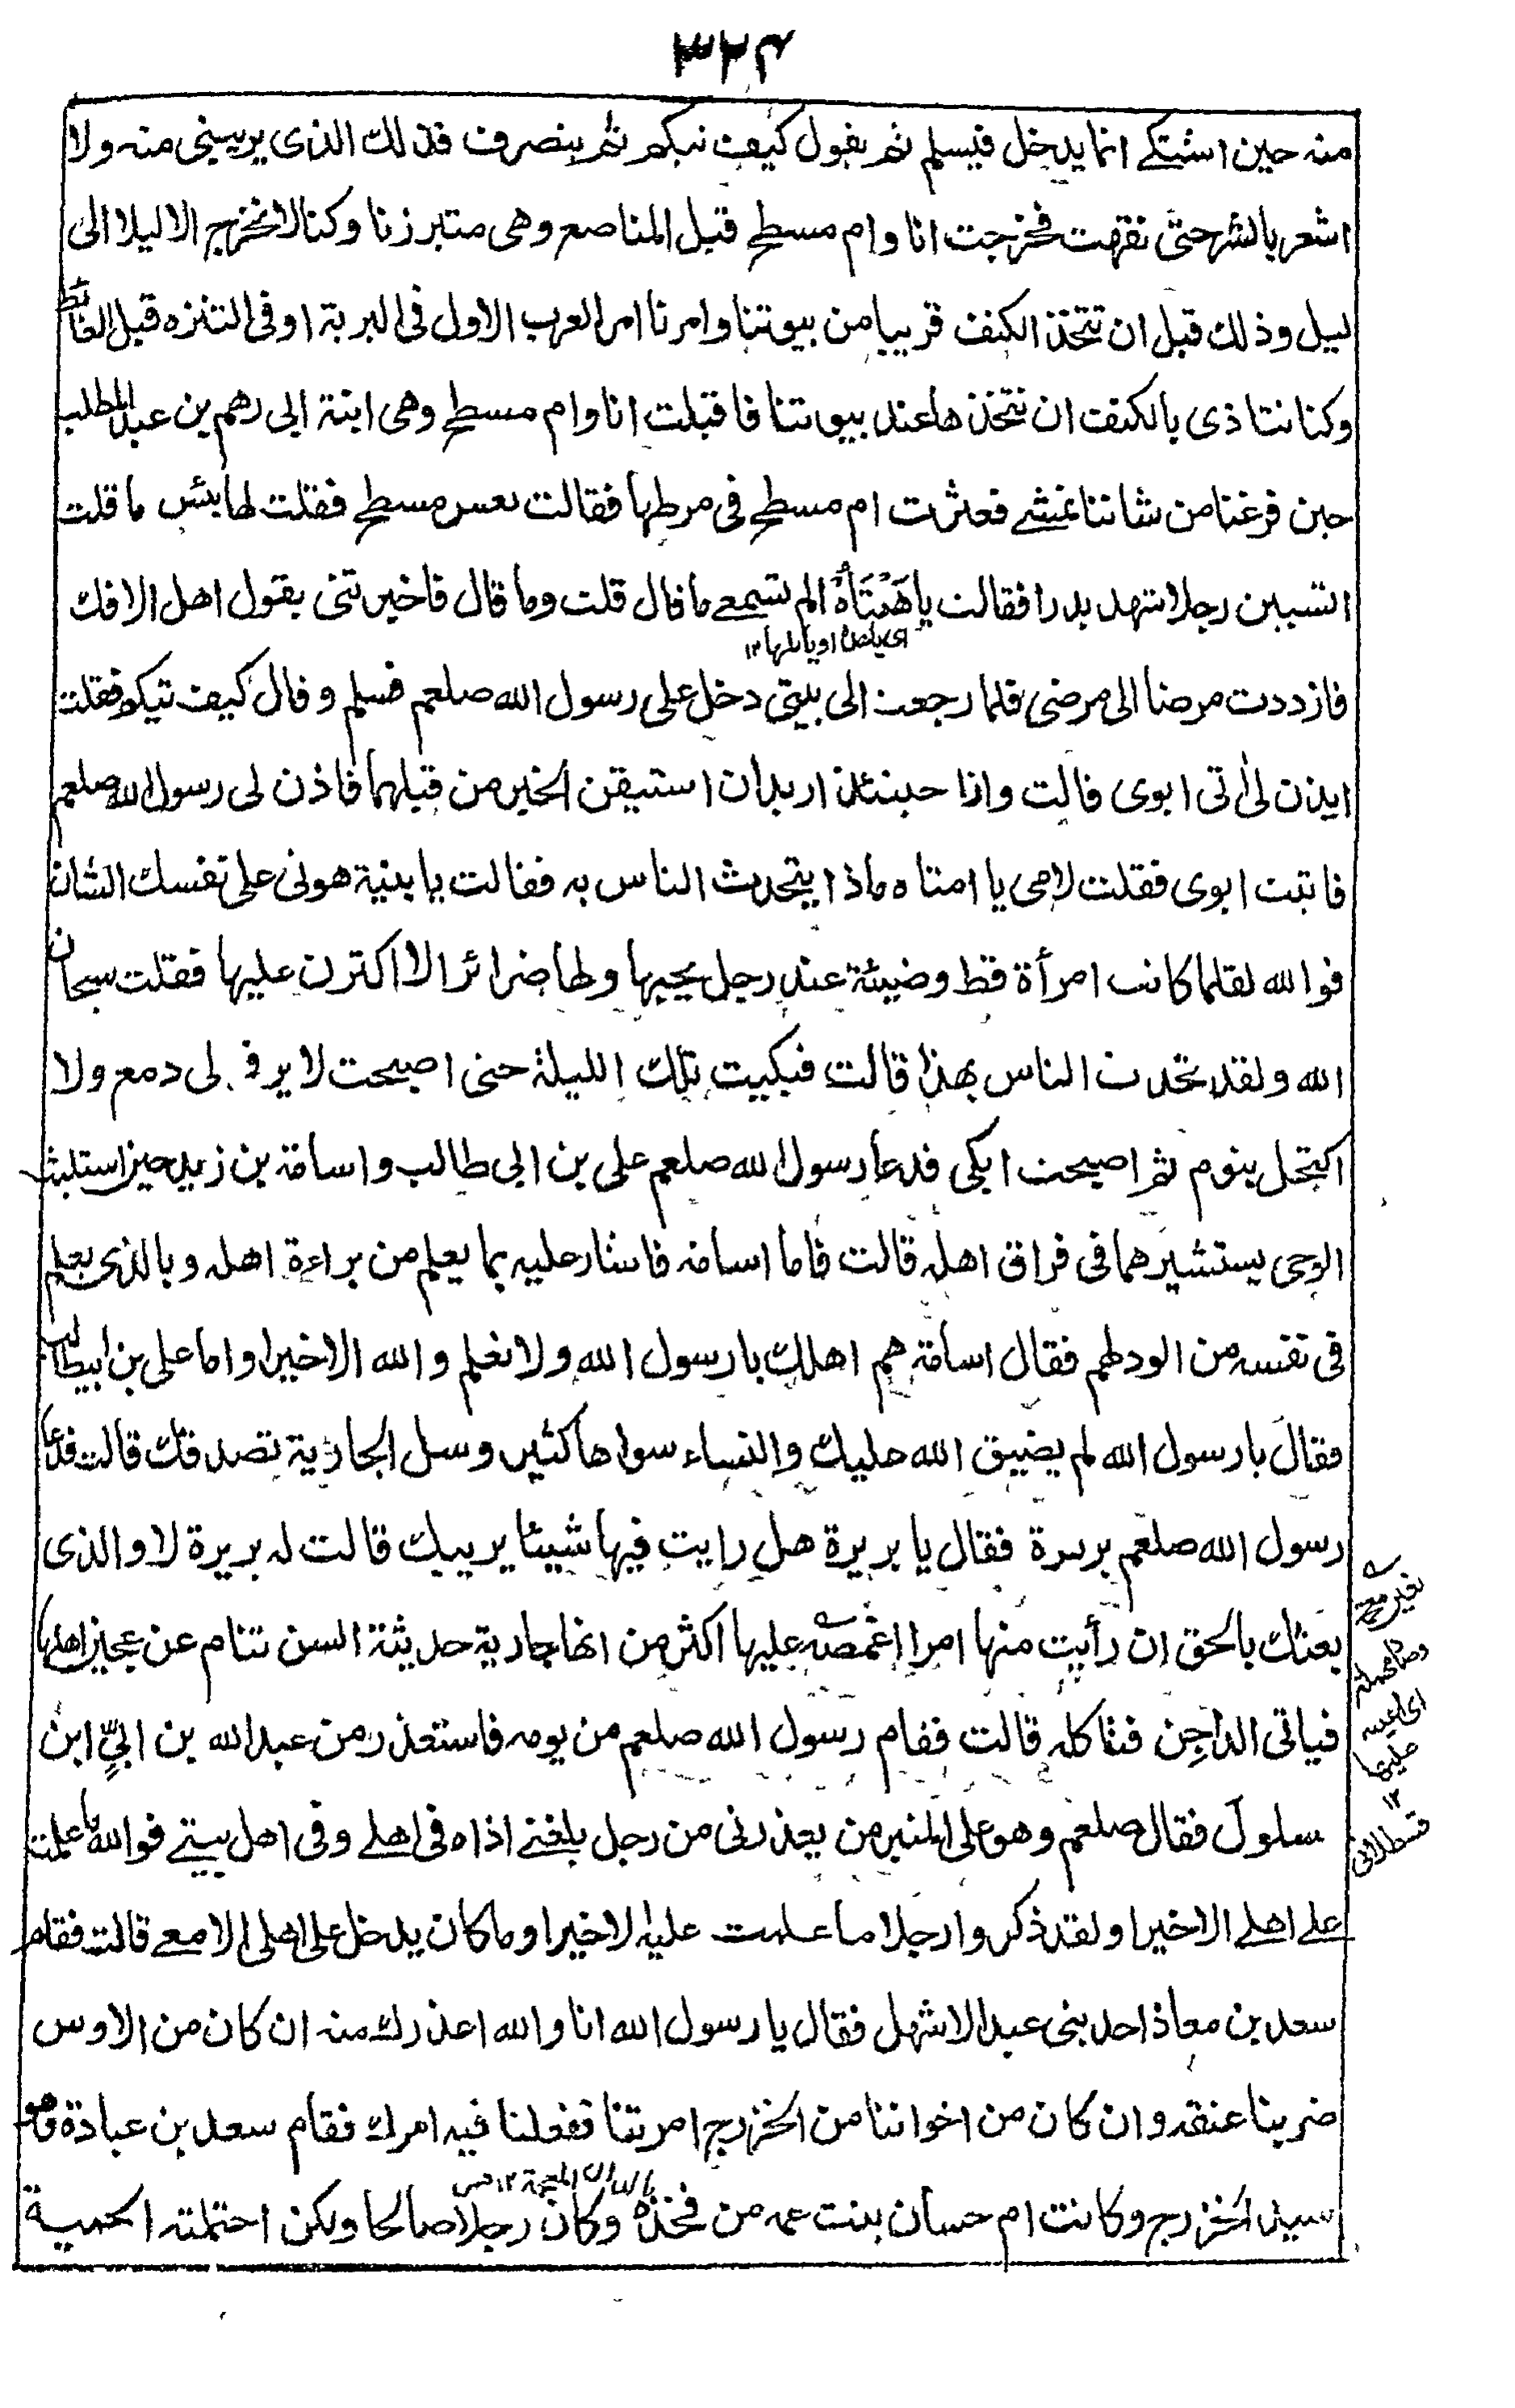 ٣٢٤
منه حين اشتكى انما يدخل فيسلم ثم يقول كيف تيكم ثم ينصرف فذلك الذى يريبنى منه ولا
اشعر بالشر حتى نقهت فخرجت انا وام مسطح قبل المناصع وهى متبرزنا وكنا لا نخرج الا ليلا الى
ليل وذلك قبل ان تتخذ الكنف قريبا من بيوتنا وامرنا امر العرب الاول فى البرية او فى التنزه قبل الغائط
وكنا نتاذى بالكنف ان نتخذها عند بيوتنا فاقبلت انا وام مسطح وهى ابنة ابى رهم بن عبد المطلب
حين فرغنا من شاننا نمشى فعثرت ام مسطح فى مرطها فقالت تعس مسطح فقلت لها بئس ما قلت
اتسبين رجلا شهد بدرا فقالت يا هَنْتَاهْ الم تسمعى ما قال قلت وما قال فاخبرتنى بقول اهل الافك
اى يا هذه او يا بلها ١٢
فازددت مرضا الى مرضى فلما رجعت الى بيتى دخل على رسول الله صلعم فسلم وقال كيف تيكم فقلت
ايذن لى اٰتى ابوى قالت وانا حينئذ اريد ان استيقن الخبر من قبلهما فاذن لى رسول الله صلعم
فاتيت ابوى فقلت لامى يا امتاه ماذا يتحدث الناس به فقالت يا بنية هونى على نفسك الشان
فوالله لقلما كانت امرأة قط وضيئة عند رجل يحبها ولها ضرائر الا اكثرن عليها فقلت سبحان
الله ولقد تحدث الناس بهذا قالت فبكيت تلك الليلة حتى اصبحت لا يرق لى دمع ولا
اكتحل بنوم ثم اصبحت ابكى فدعا رسول الله صلعم على بن ابى طالب واسامة بن زيد حين استلبث
الوحى يستشيرهما فى فراق اهله قالت فاما اسامه فاشار عليه بما يعلم من براءة اهله وبالذى يعلم
فى نفسه من الود لهم فقال اسامة هم اهلك يا رسول الله ولا نعلم والله الا خيرا واما على بن ابيطالب
فقال يا رسول الله لم يضيق الله عليك والنساء سواها كثير وسل الجارية تصدقك قالت فدعا
رسول الله صلعم بريرة فقال يا بريرة هل رايت فيها شيئا يريبك قالت له بريرة لا والذى
بعثك بالحق ان رأيت منها امرا اغمصه عليها اكثر من انها جارية حديثة السن تنام عن عجين اهلها
فياتى الداجِن فتاكله قالت فقام رسول الله صلعم من يومه فاستعذر من عبد الله بن ابىّ ابن
سلول فقال صلعم وهو على المنبر من يعذرنى من رجل بلغنى اذاه فى اهلى وفى اهل بيتى فوالله ما علمت
على اهلى الا خيرا ولقد ذكروا رجلا ما علمت عليه الا خيرا وما كان يدخل على اهلى الا معى قالت فقام
سعد بن معاذ احد بنى عبد الاشهل فقال يا رسول الله انا والله اعذرك منه ان كان من الاوس
ضربنا عنقه وان كان من اخواننا من الخزرج امرتنا ففعلنا فيه امرك فقام سعد بن عبادة وهو
بالذال المعجمة ١٢ قس
سيد الخزرج وكانت ام حسان بنت عمه من فخذه وكان رجلا صالحا ولكن احتملته الحمية
بغين معجمة
وصاد مهملة
اى اعيبه
عليها
١٢
قسطلانى